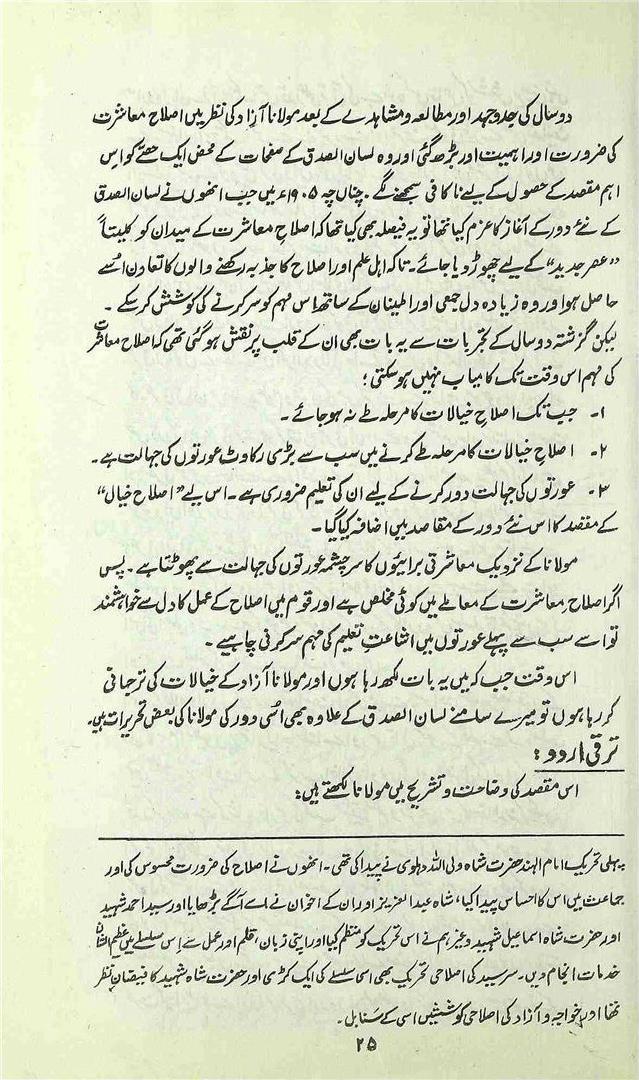 دو سال کی جدوجہد اور مطالعہ و مشاہدے کے بعد مولانا آزاد کی نظر میں اصلاح معاشرت
کی ضرورت اور اہمیت اور بڑھ گئی اور وہ لسان الصدق کے صفحات کے محض ایک حصے کو اس
اہم مقصد کے حصول کے لیے ناکافی سمجھنے لگے۔ چناں چہ ۱۹۰۵ء میں جب انھوں نے لسان الصدق
کے نئے دور کے آغاز کا عزم کیا تھا تو یہ فیصلہ بھی کیا تھا کہ اصلاح معاشرت کے میدان کو کلیتاً
"عصر جدید" کے لیے چھوڑ دیا جائے۔ تاکہ اہل علم اور اصلاح کا جذبہ رکھنے والوں کا تعاون اُسے
حاصل ہو اور وہ زیادہ دل جمعی اور اطمینان کے ساتھ اِس مہم کو سر کرنے کی کوشش کرسکے۔
لیکن گزشتہ دو سال کے تجربات سے یہ بات بھی ان کے قلب پر نقش ہو گئی تھی کہ اصلاح معاشرت
کی مہم اس وقت تک کامیاب نہیں ہوسکتی؛
۱۔ جب تک اصلاحِ خیالات کا مرحلہ طے نہ ہو جائے۔
۲۔ اصلاحِ خیالات کا مرحلہ طے کرنے میں سب سے بڑی رکاوٹ عورتوں کی جہالت ہے۔
۳۔ عورتوں کی جہالت دور کرنے کے لیے ان کی تعلیم ضروری ہے۔ اس لیے "اصلاح خیال"
کے مقصد کا اس نئے دور کے مقاصد میں اضافہ کیا گیا۔
مولانا کے نزدیک معاشرتی برائیوں کا سرچشمہ عورتوں کی جہالت سے پھوٹتا ہے۔ پس
اگر اصلاحِ معاشرت کے معاملے میں کوئی مخلص ہے اور قوم میں اصلاح کے عمل کا دل سے خواہشمند
تو اسے سب سے پہلے عورتوں میں اشاعتِ تعلیم کی مہم سر کرنی چاہیے۔
اس وقت جب کہ میں یہ بات لکھ رہا ہوں اور مولانا آزاد کے خیالات کی ترجمانی
کر رہا ہوں تو میرے سامنے لسان الصدق کے علاوہ بھی اُسی دور کی مولانا کی بعض تحریرات ہیں۔
ترقی اردو:
اس مقصد کی وضاحت و تشریح میں مولانا لکھتے ہیں:
پہلی تحریک امام الہند حضرت شاہ ولی اللہ دہلوی نے پیدا کی تھی۔ انھوں نے اصلاح کی ضرورت محسوس کی اور
جماعت میں اس کا احساس پیدا کیا، شاہ عبدالعزیز اور ان کے اخوان نے اسے آگے بڑھایا اور سید احمد شہید
اور حضرت شاہ اسماعیل شہید وغیرہم نے اس تحریک کو منظم کیا اور اپنی زبان، قلم اور عمل سے اس سلسلے میں عظیم الشان
خدمات انجام دیں۔ سرسید کی اصلاحی تحریک بھی اسی سلسلے کی ایک کڑی اور حضرت شاہ شہید کا فیضانِ نظر
تھا اور خواجہ و آزاد کی اصلاحی کوششیں اسی کے سنابل۔
۲۵